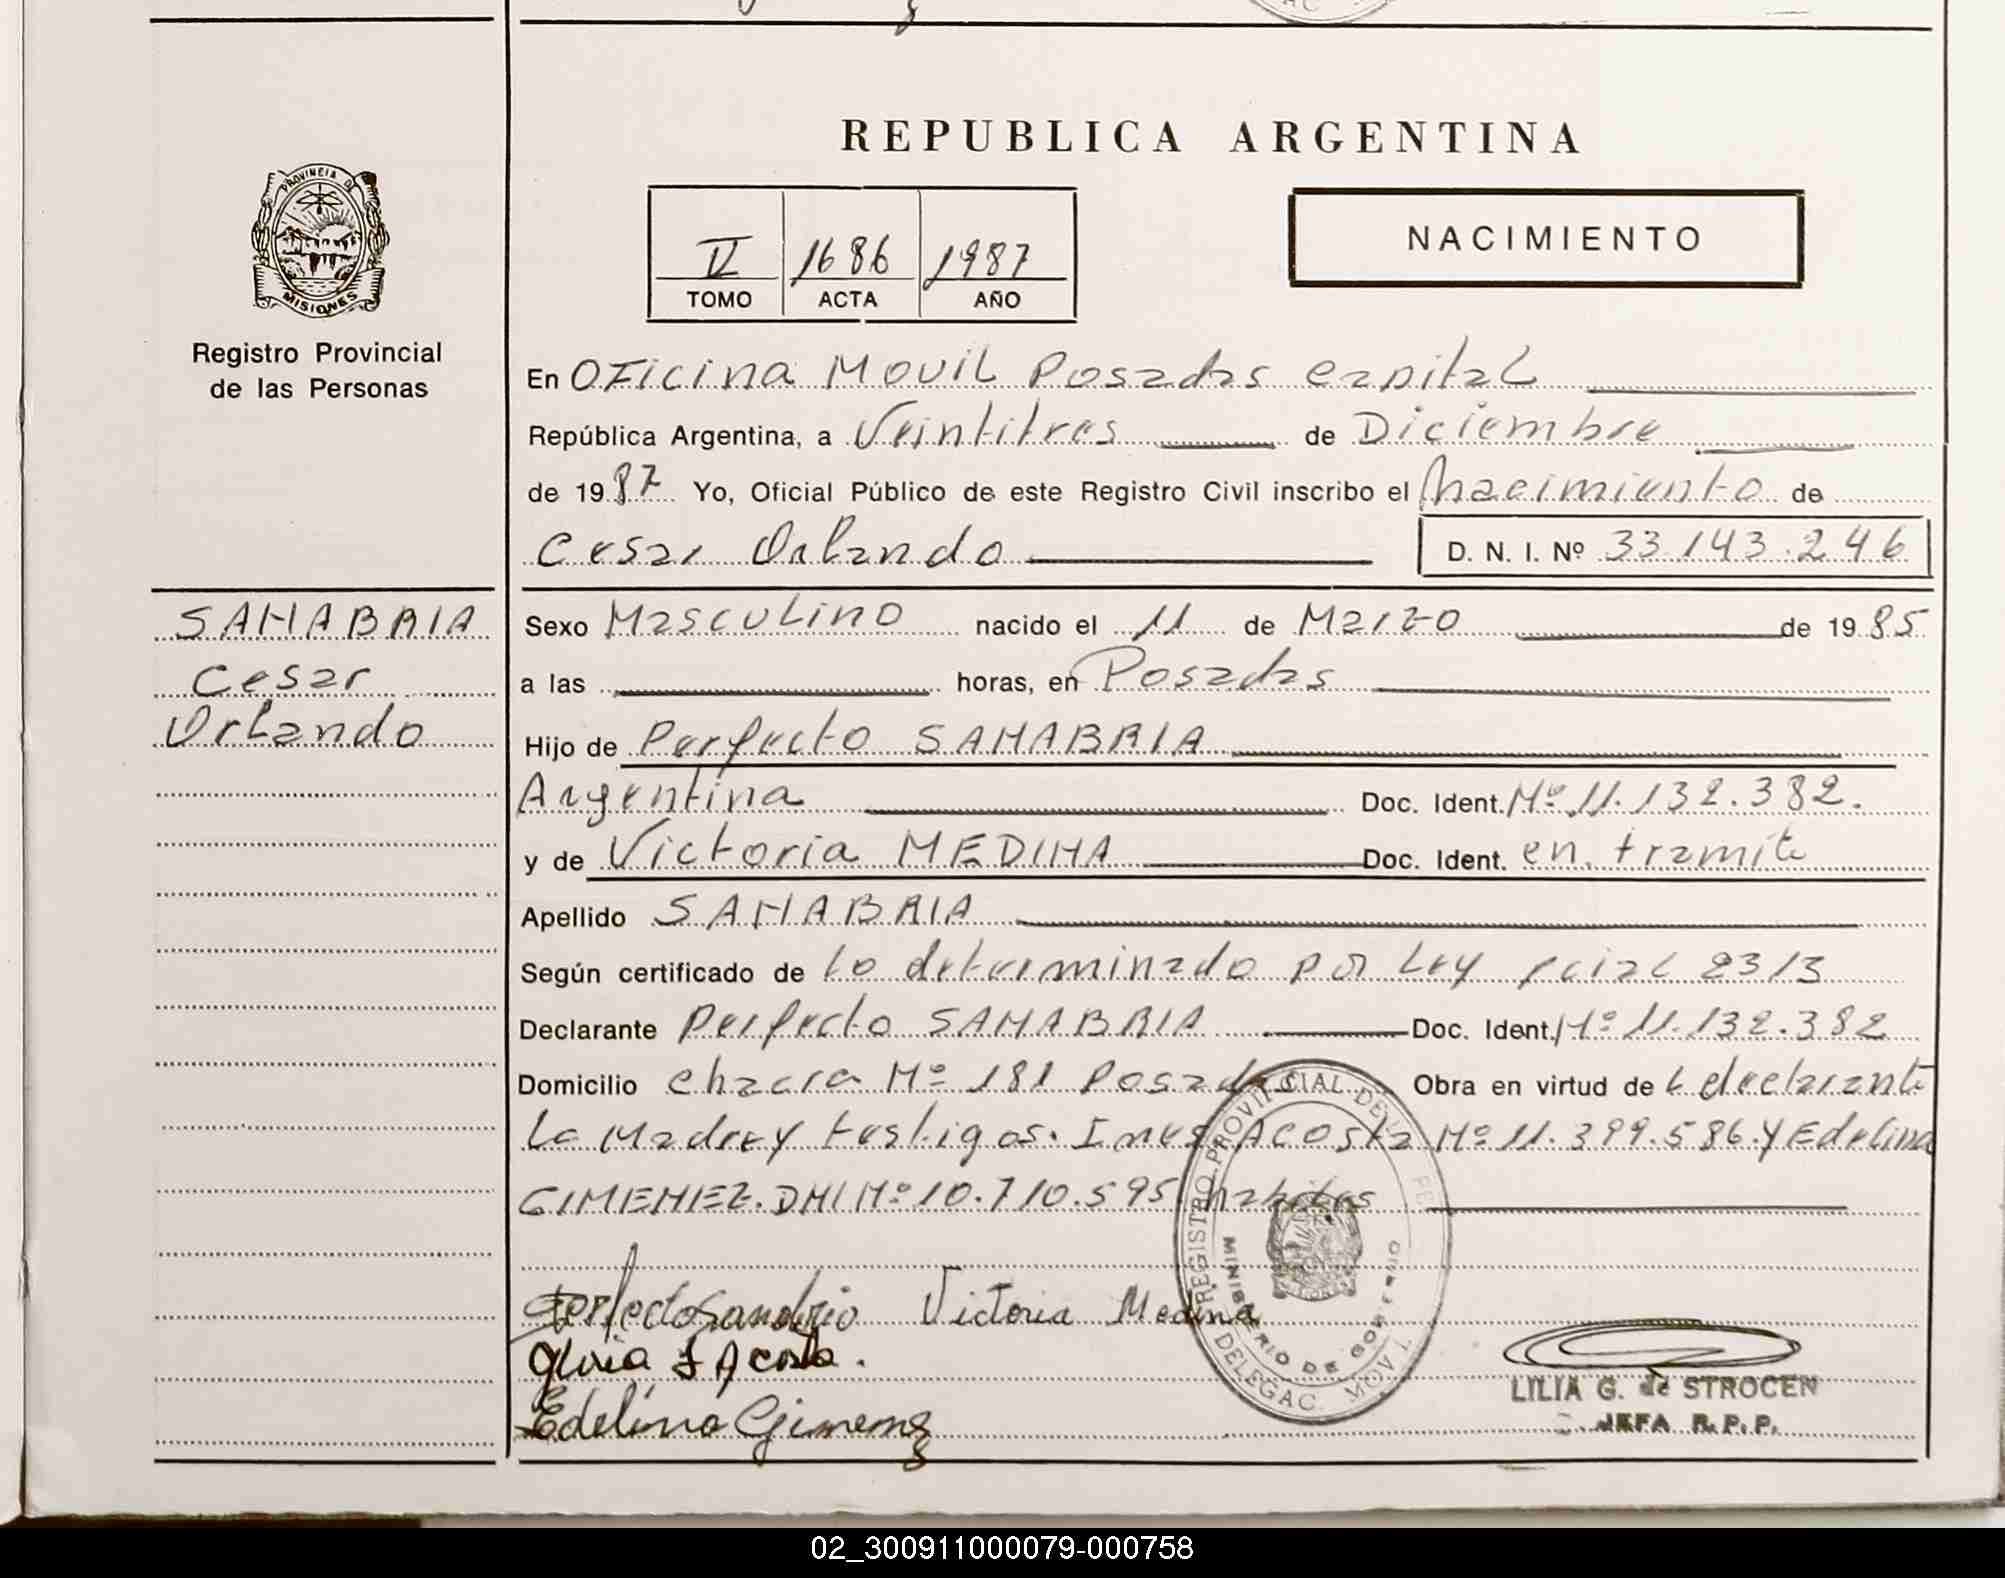 REPUBLICA ARGENTINA
PROVINCIA DE
MISIONES
Registro Provincial
de las Personas
II 1686 1987
TOMO ACTA AÑO
NACIMIENTO
En Oficina Movil Posadas capital
República Argentina, a Veintitres de Diciembre
de 1987 Yo, Oficial Público de este Registro Civil inscribo el Nacimiento de
Cesar Orlando D. N. I. Nº 33.143.246
SANABRIA
Cesar
Orlando
Sexo Masculino nacido el 11 de Marzo de 1985
a las horas, en Posadas
Hijo de Perfecto SANABRIA
Argentina Doc. Ident. Nº 11.132.382.
y de Victoria MEDINA Doc. Ident. en tramite
Apellido SANABRIA
Según certificado de lo determinado por Ley pcial 2313
Declarante Perfecto SANABRIA Doc. Ident. Nº 11.132.382
Domicilio chacra Nº 181 Posadas Obra en virtud de L declarante
La Madre y testigos. Ines Acosta Nº 11.399.586. y Edelina
GIMENEZ. DNI Nº 10.710.595 habiles
Victoria Medina
Gloria I Acosta.
Edelina Gimenez
REGISTRO PROVINCIAL DE LAS PER
MINISTERIO DE GOBIERNO
DELEGAC. MOVIL
LILIA G. de STROCEN
JEFA R.P.P.
02_300911000079-000758